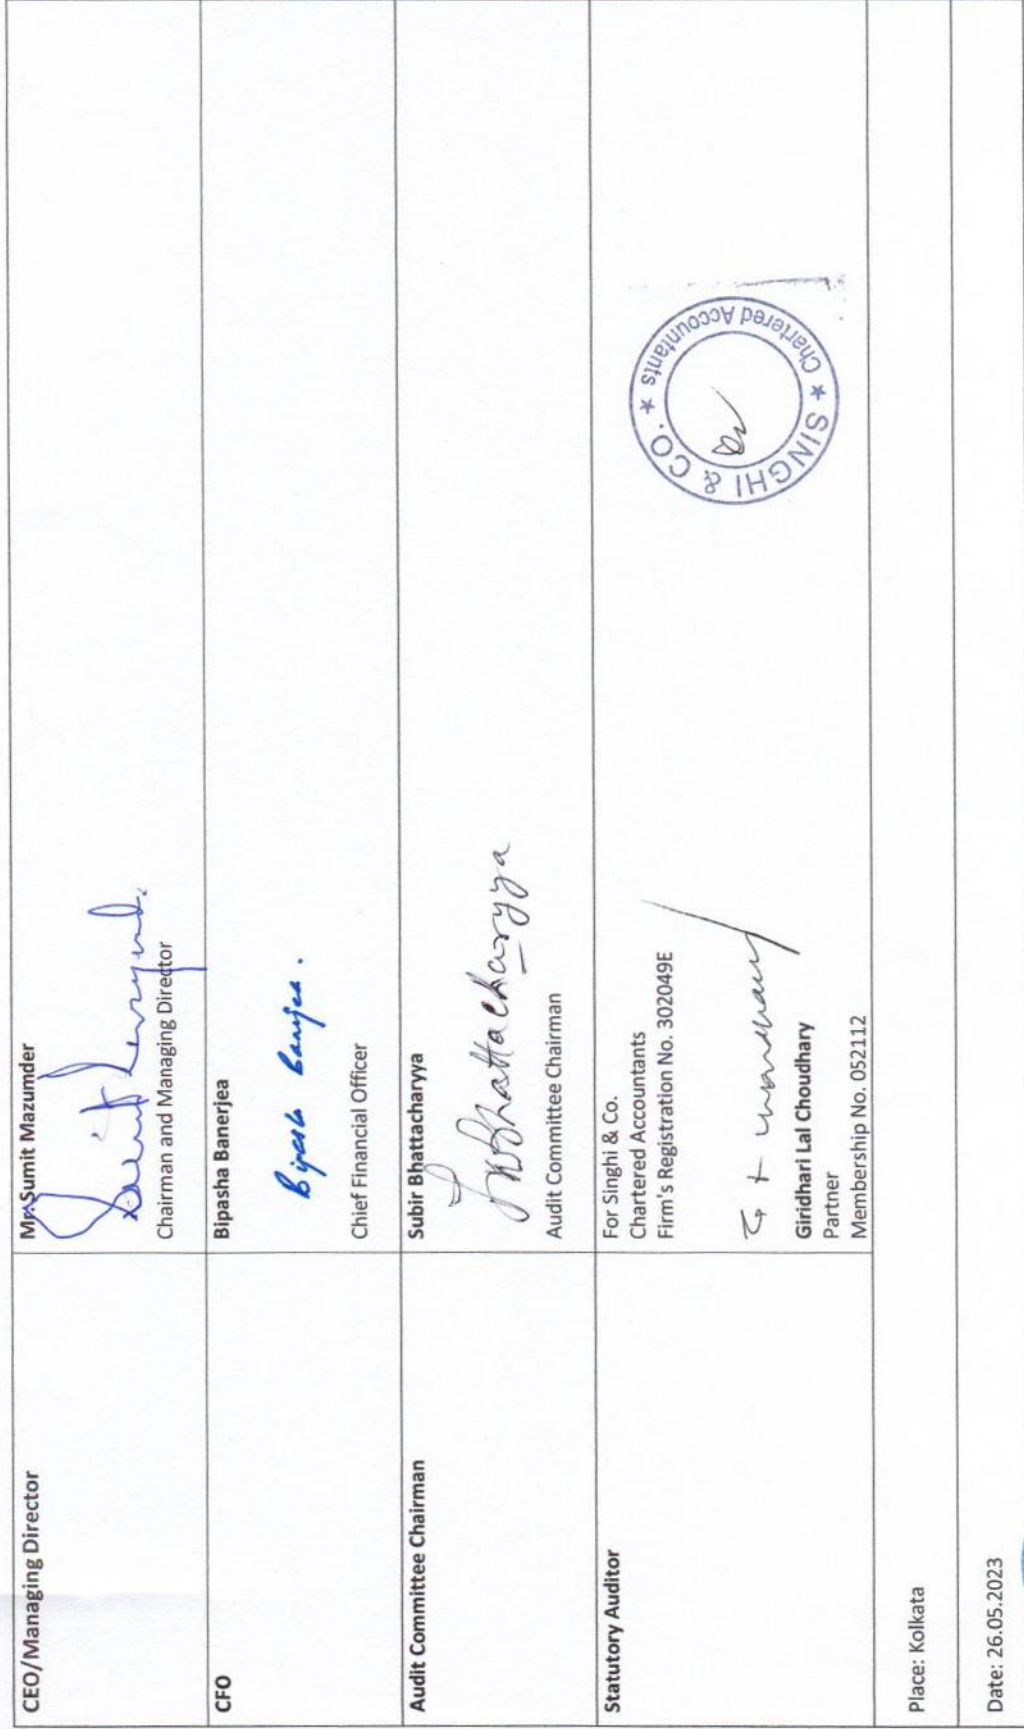 CEO/Managing Director
Mr.Sumit Mazumder
Chairman and Managing Director
CFO
Bipasha Banerjea
Chief Financial Officer
Audit Committee Chairman
Subir Bhattacharyya
Bhattacharyya
Audit Committee Chairman
Statutory Auditor
For Singhi & Co.
Chartered Accountants
Firm's Registration No. 302049E
Giridhari Lal Choudhary
Partner
Membership No. 052112
SINGHI & CO. ★ Chartered Accountants ★
Place: Kolkata
Date: 26.05.2023